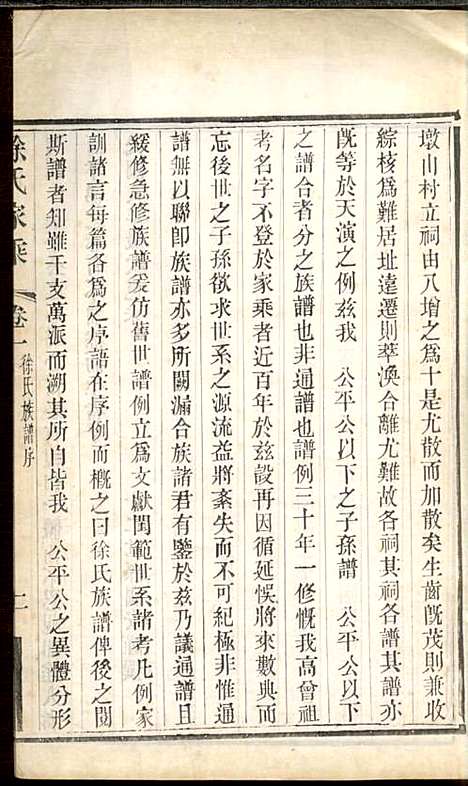 墩山村立祠由八增之為十是尤散而加散矣生齒旣茂則兼收
綜核爲難居址遠遷則萃渙合離尤難故各祠其祠各譜其譜亦
旣等於天演之例茲我　公平公以下之子孫譜　公平公以下
之譜合者分之族譜也非通譜也譜例三十年一修慨我高曾祖
考名字不登於家乘者近百年於茲設再因循延悞將來數典而
忘後世之子孫欲求世系之源流益將紊失而不可紀極非惟通
譜無以聯卽族譜亦多所闕漏合族諸君有鑒於茲乃議通譜且
緩修急修族譜爰仿舊世譜例立為文獻閫範世系諸考凡例家
訓諸言每篇各為之序語在序例而概之曰徐氏族譜俾後之閱
斯譜者知雖千支萬派而溯其所自皆我　公平公之異體分形
徐氏家乘　卷一　徐氏族譜序　二